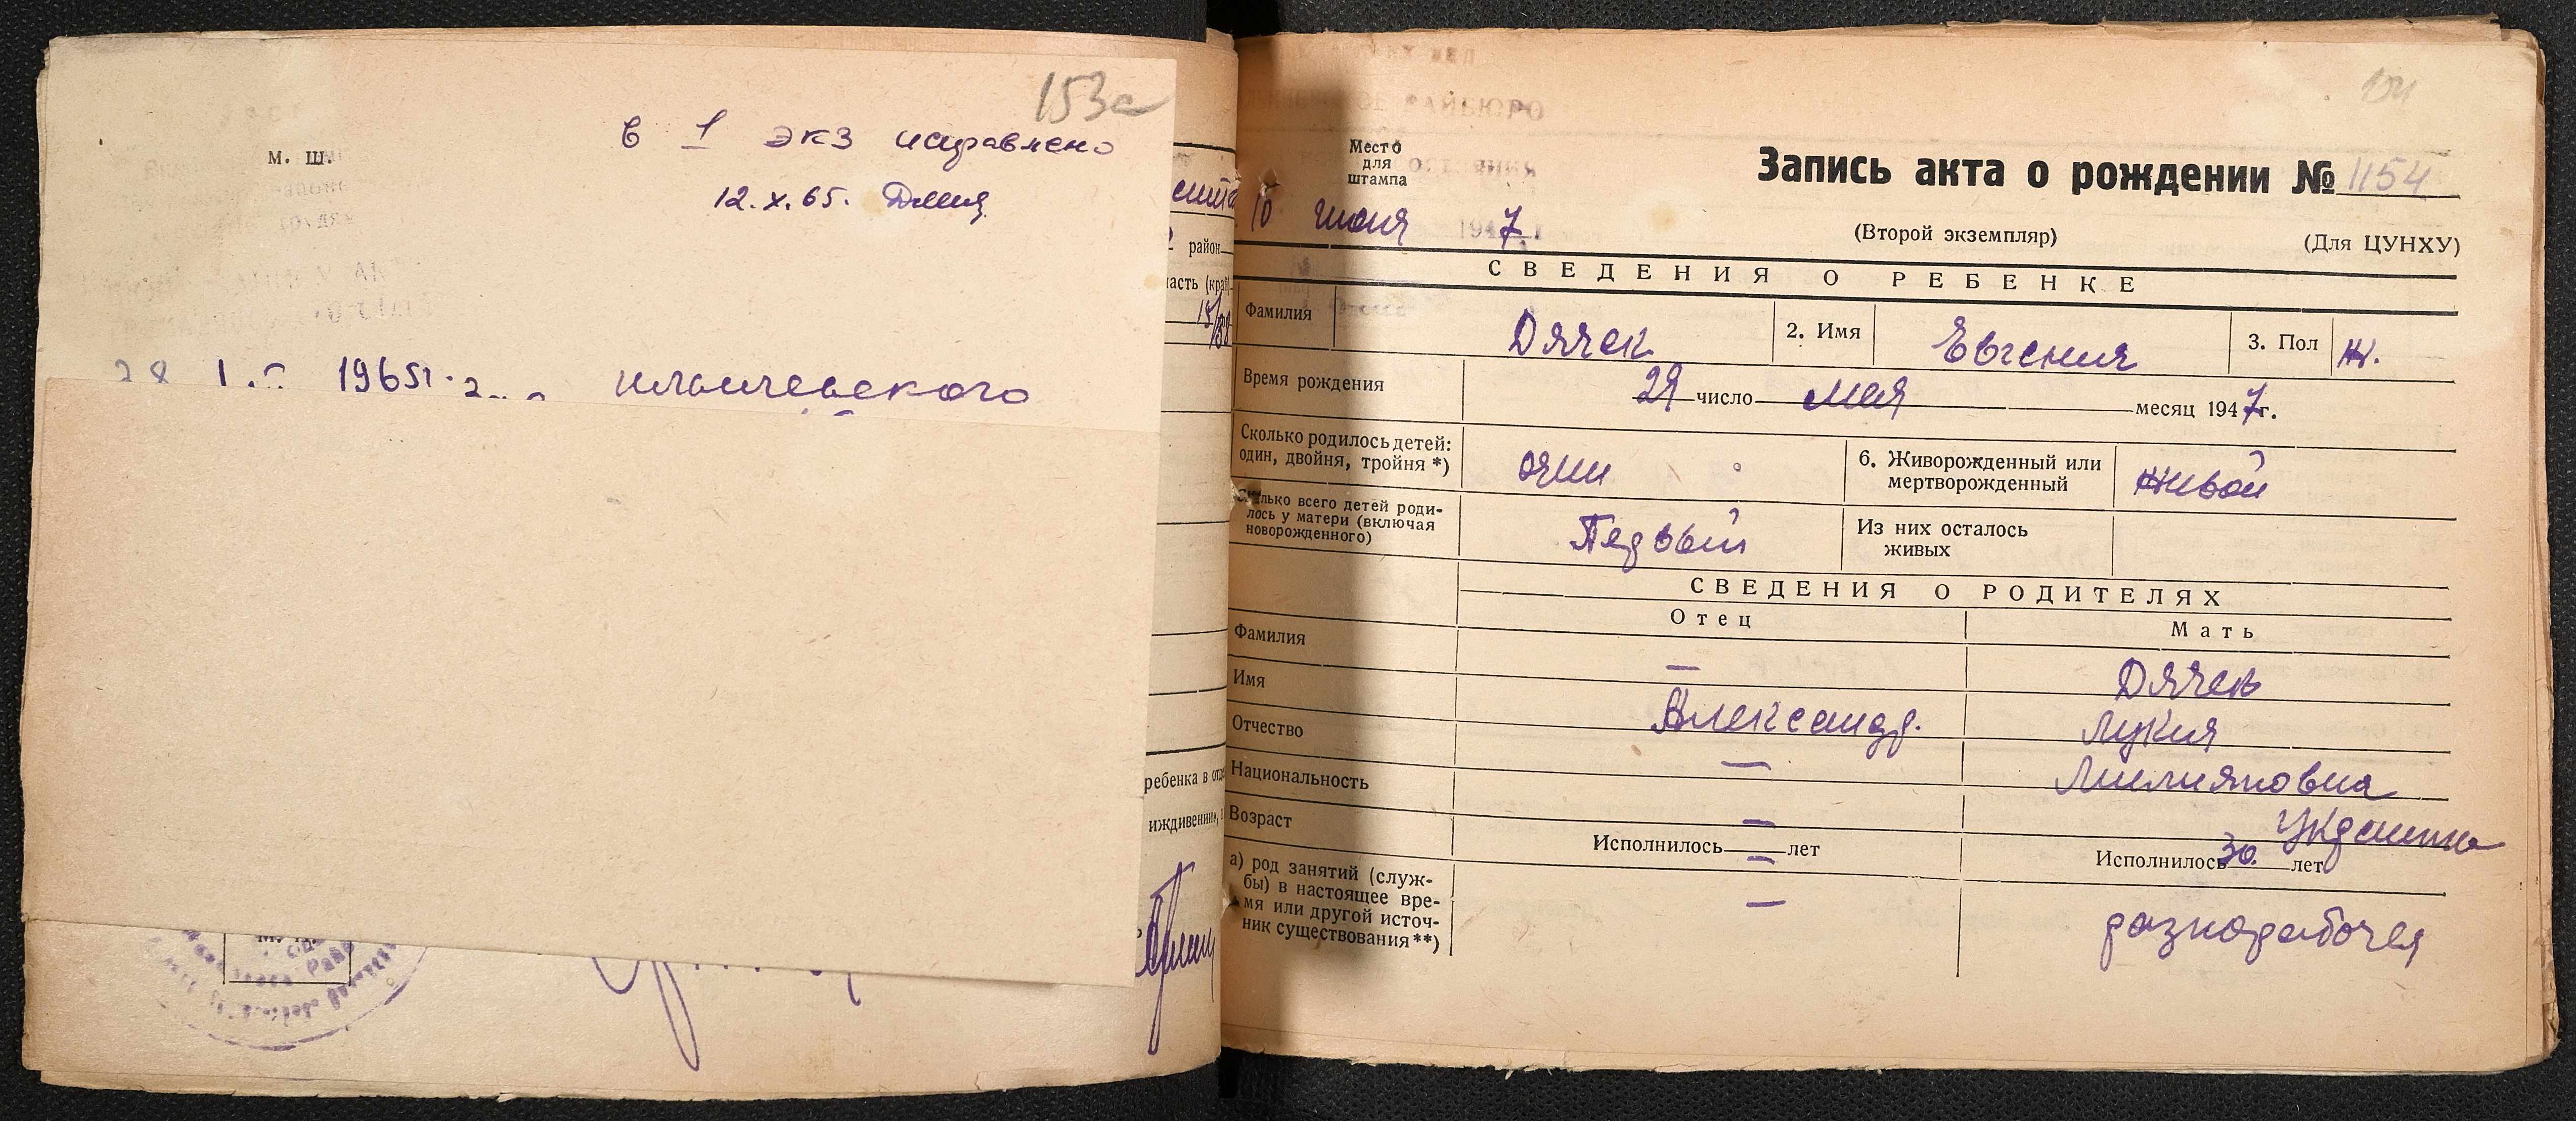 153а
М. Ш.
в 1 экз исправлено
12.X.65.
1965г. ильичевского
район
ребенка в отде
иждивении,
154
РАЙБЮРО
Место
для
штампа
10 июня 1947
Запись акта о рождении № 1154
(Второй экземпляр)
(Для ЦУНХУ)
СВЕДЕНИЯ О РЕБЕНКЕ
Фамилия Дячек 2. Имя Евгения 3. Пол Ж.
Время рождения 29 число мая месяц 1947г.
Сколько родилось детей:
один, двойня, тройня *)
один
6. Живорожденный или
мертворожденный
живой
Сколько всего детей роди-
лось у матери (включая
новорожденного)
Первый
Из них осталось
живых
СВЕДЕНИЯ О РОДИТЕЛЯХ
Отец Мать
Фамилия — Дячек
Имя Александр. Лукия
Отчество — Милияновна
Национальность — Украинка
Возраст Исполнилось — лет Исполнилось 30. лет
а) род занятий (служ-
бы) в настоящее вре-
мя или другой источ-
ник существования **)
—
разнорабочея